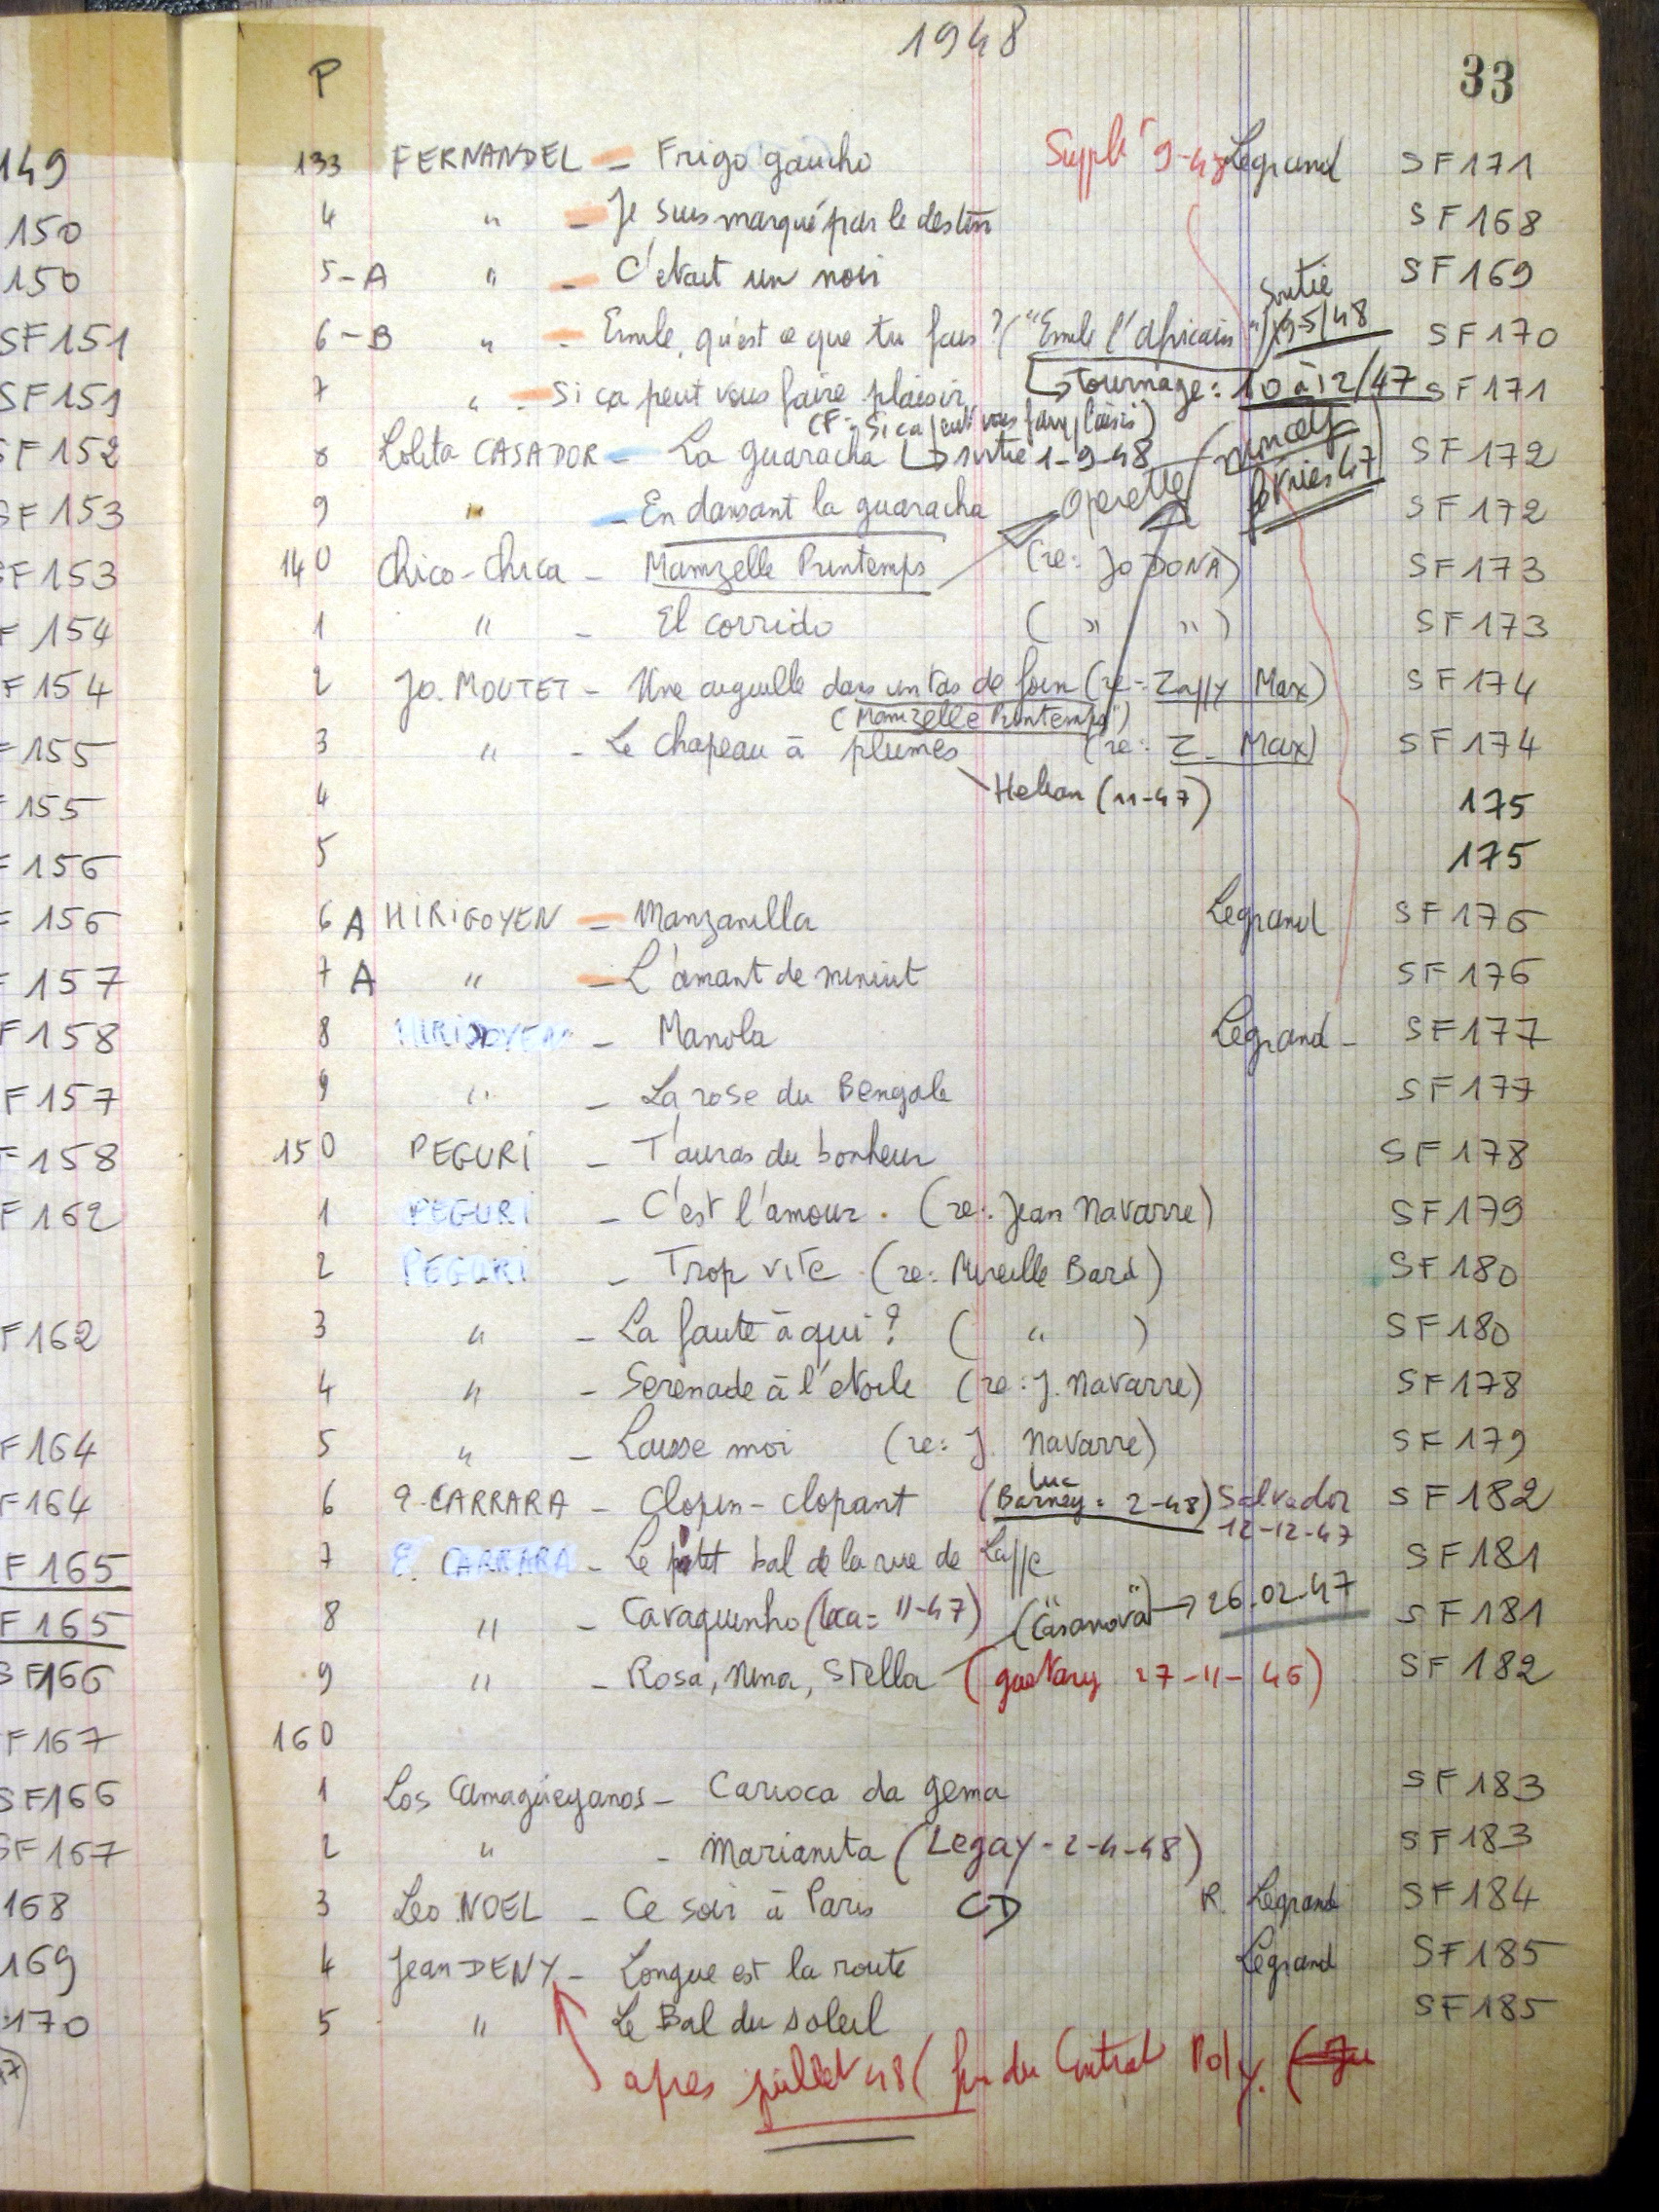 1948
33
P
133 FERNANDEL - Frigo gaucho Supplt 9-48 Legrand SF171
4 " - Je suis marqué par le destin SF168
5-A " - C'etait un noir SF169
Sortie
6-B " - Emile, qu'est ce que tu fais? ("Emile l'Africain") 19-5/48 SF170
7 " - Si ça peut vous faire plaisir, tournage: 10 à 12/47 SF171
(F: Si ca peut vous faire plaisir)
8 Lolita CASADOR - La guaracha sortie 1-9-48 SF172
9 " - En dansant la guaracha Operette février 47 SF172
140 Chico-Chica - Mamzelle Printemps (re: Jo DONA) SF173
1 " - El corrido ( " " ) SF173
2 Jo. MOUTET - Une aiguille dans un tas de foin (re: Zappy Max) SF174
(Mamzelle Printemps")
3 " - Le chapeau à plumes (re: Z. Max) SF174
4 Helian (11-47) 175
5 175
6 A HIRIGOYEN - Manzanilla Legrand SF176
7 A " - L'amant de minuit SF176
8 HIRIGOYEN - Manola Legrand - SF177
9 " - La rose du Bengale SF177
150 PEGURI - T'auras du bonheur SF178
1 PEGURI - C'est l'amour. (re: Jean Navarre) SF179
2 PEGURI - Trop vite (re: Mireille Bard) SF180
3 " - La faute à qui? ( " ) SF180
4 " - Serenade à l'etoile (re: J. Navarre) SF178
5 " - Laisse moi (re: J. Navarre) SF179
Luc
6 E. CARRARA - Clopin-clopant (Barney = 2-48) Salvador SF182
12-12-47
7 E. CARRARA - Le p'tit bal de la rue de Lappe SF181
8 " - Cavaquinho (Loca = 11-47) ("Casanova") → 26.02.47 SF181
9 " - Rosa, Nina, Stella (guetary 27-11-46) SF182
160
1 Los Camagüeyanos - Carioca da gema SF183
2 " - Marianita (Legay - 2-4-48) SF183
3 Leo NOEL - Ce soir à Paris CD R. Legrand SF184
4 Jean DENY - Longue est la route Legrand SF185
5 " Le Bal du soleil SF185
apres juillet 48 (fin du Contrat Poly.
149
150
150
SF151
SF151
SF152
SF153
SF153
F154
F154
F155
F155
F156
F156
F157
F158
F157
F158
F162
F162
F164
F164
F165
F165
SF166
F167
SF166
SF167
168
169
170